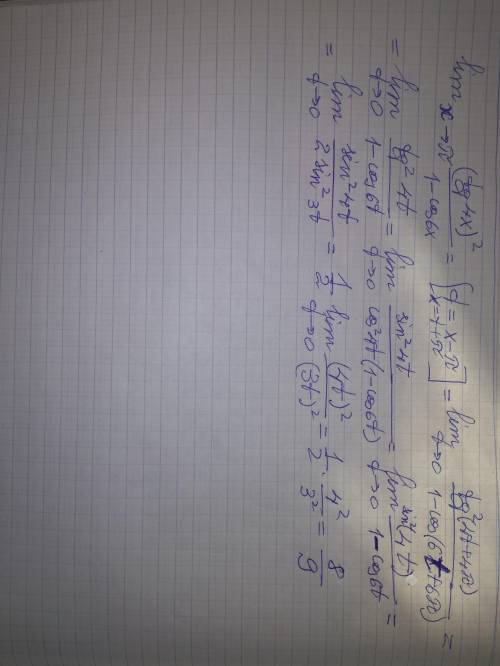 lim x→π (tg 4x)² / (1-cos6x) = [t = x-π; x = t+π] = lim t→0 tg²(4t+4π) / (1-cos(6t+6π)) =
= lim t→0 tg²4t / (1-cos6t) = lim t→0 sin²4t / (cos²4t(1-cos6t)) = lim t→0 sin²(4t) / (1-cos6t) =
= lim t→0 sin²4t / (2sin²3t) = 1/2 lim t→0 (4t)² / (3t)² = 1/2 · 4²/3² = 8/9